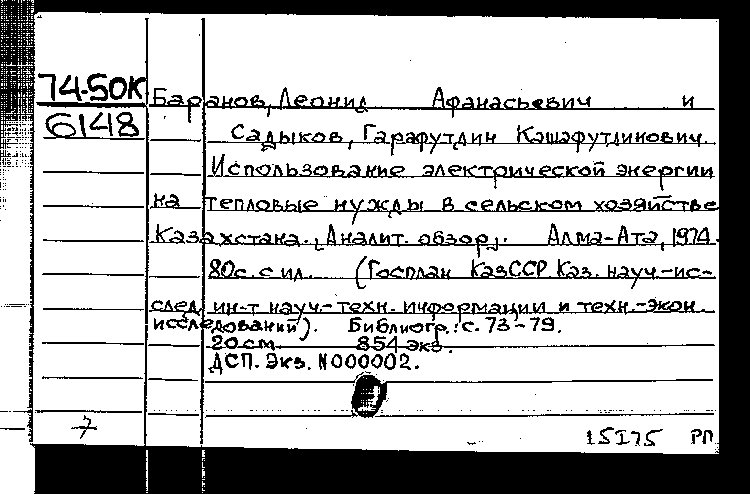 74-50К
6148
Баранов, Леонид Афанасьевич и
Садыков, Гарафутдин Кашафутдинович.
Использование электрической энергии
на тепловые нужды в сельском хозяйстве
Казахстана. [Аналит. обзор]. Алма-Ата, 1974.
80с. с ил. (Госплан КазССР. Каз. науч.-ис-
след. ин-т науч.-техн. информации и техн.-экон.
исследований). Библиогр.: с. 73-79.
20 см. 854 экз.
ДСП. Экз. N000002.
7
15I75 РП